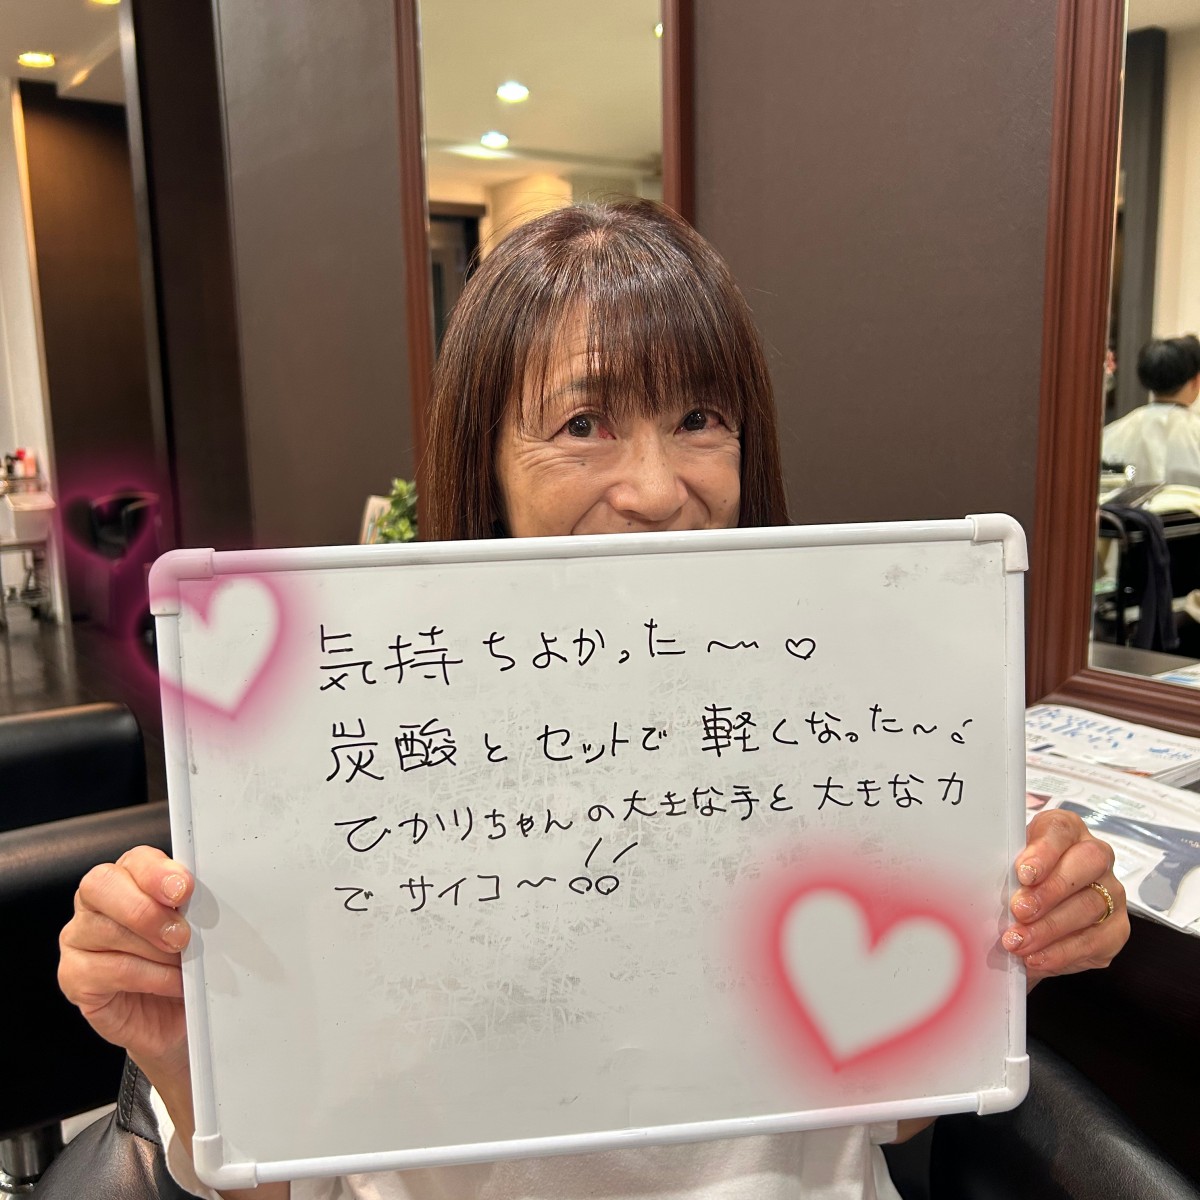 気持ちよかった〜♡
炭酸とセットで軽くなった〜♪
ひかりちゃんの大きな手と大きな力
でサイコ〜!!